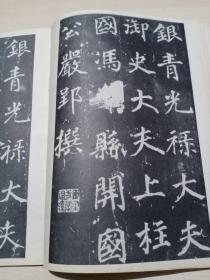 銀青光禄大夫
御史大夫上柱
國馮縣開國
公嚴郢撰
銀青光禄大夫